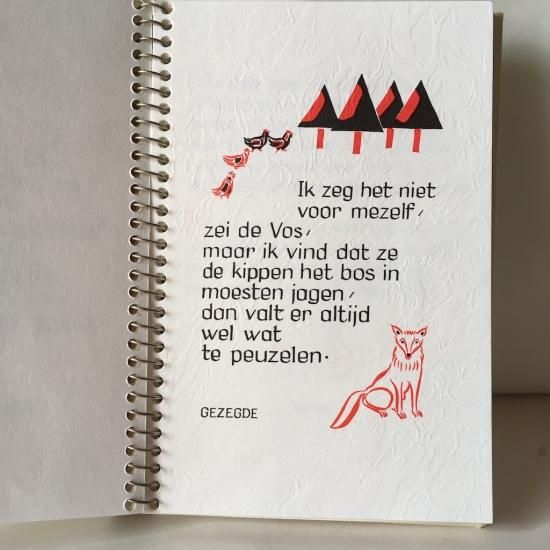 Ik zeg het niet
voor mezelf,
zei de Vos,
maar ik vind dat ze
de kippen het bos in
moesten jagen,
dan valt er altijd
wel wat
te peuzelen.
GEZEGDE